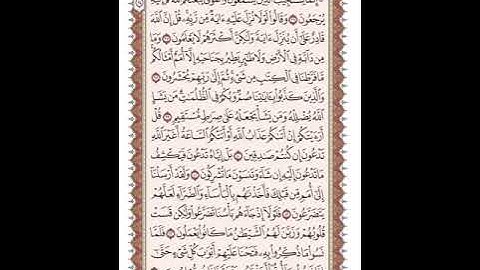 إِنَّمَا يَسْتَجِيبُ الَّذِينَ يَسْمَعُونَ وَالْمَوْتَىٰ يَبْعَثُهُمُ اللَّهُ ثُمَّ إِلَيْهِ
يُرْجَعُونَ ۝ وَقَالُوا لَوْلَا نُزِّلَ عَلَيْهِ ءَايَةٌ مِّن رَّبِّهِ قُلْ إِنَّ اللَّهَ
قَادِرٌ عَلَىٰ أَن يُنَزِّلَ ءَايَةً وَلَٰكِنَّ أَكْثَرَهُمْ لَا يَعْلَمُونَ ۝ وَمَا
مِن دَابَّةٍ فِي الْأَرْضِ وَلَا طَائِرٍ يَطِيرُ بِجَنَاحَيْهِ إِلَّا أُمَمٌ أَمْثَالُكُم
مَّا فَرَّطْنَا فِي الْكِتَابِ مِن شَيْءٍ ثُمَّ إِلَىٰ رَبِّهِمْ يُحْشَرُونَ ۝
وَالَّذِينَ كَذَّبُوا بِـَٔايَاتِنَا صُمٌّ وَبُكْمٌ فِي الظُّلُمَاتِ مَن يَشَإِ
اللَّهُ يُضْلِلْهُ وَمَن يَشَأْ يَجْعَلْهُ عَلَىٰ صِرَاطٍ مُّسْتَقِيمٍ ۝ قُلْ
أَرَءَيْتَكُمْ إِنْ أَتَاكُمْ عَذَابُ اللَّهِ أَوْ أَتَتْكُمُ السَّاعَةُ أَغَيْرَ اللَّهِ
تَدْعُونَ إِن كُنتُمْ صَادِقِينَ ۝ بَلْ إِيَّاهُ تَدْعُونَ فَيَكْشِفُ
مَا تَدْعُونَ إِلَيْهِ إِن شَاءَ وَتَنسَوْنَ مَا تُشْرِكُونَ ۝ وَلَقَدْ أَرْسَلْنَا
إِلَىٰ أُمَمٍ مِّن قَبْلِكَ فَأَخَذْنَاهُم بِالْبَأْسَاءِ وَالضَّرَّاءِ لَعَلَّهُمْ
يَتَضَرَّعُونَ ۝ فَلَوْلَا إِذْ جَاءَهُم بَأْسُنَا تَضَرَّعُوا وَلَٰكِن قَسَتْ
قُلُوبُهُمْ وَزَيَّنَ لَهُمُ الشَّيْطَانُ مَا كَانُوا يَعْمَلُونَ ۝ فَلَمَّا
نَسُوا مَا ذُكِّرُوا بِهِ فَتَحْنَا عَلَيْهِمْ أَبْوَابَ كُلِّ شَيْءٍ حَتَّىٰ